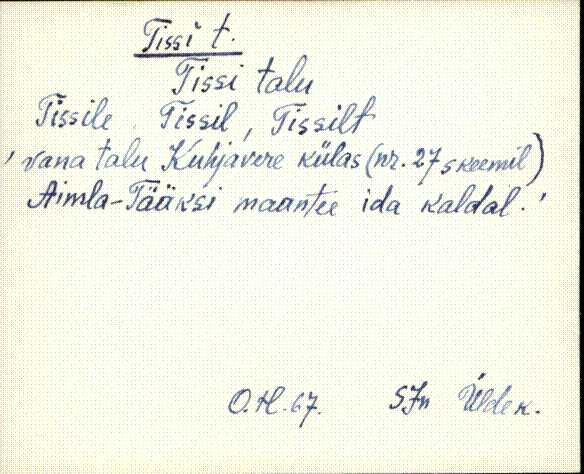 Tissi t.
Tissi talu
Tissile, Tissil, Tissilt
'vana talu Kuhjavere külas (nr. 27 skeemil)
Aimla-Tääksi maantee ida kaldal.'
O.H. 67. SJn Üldek.